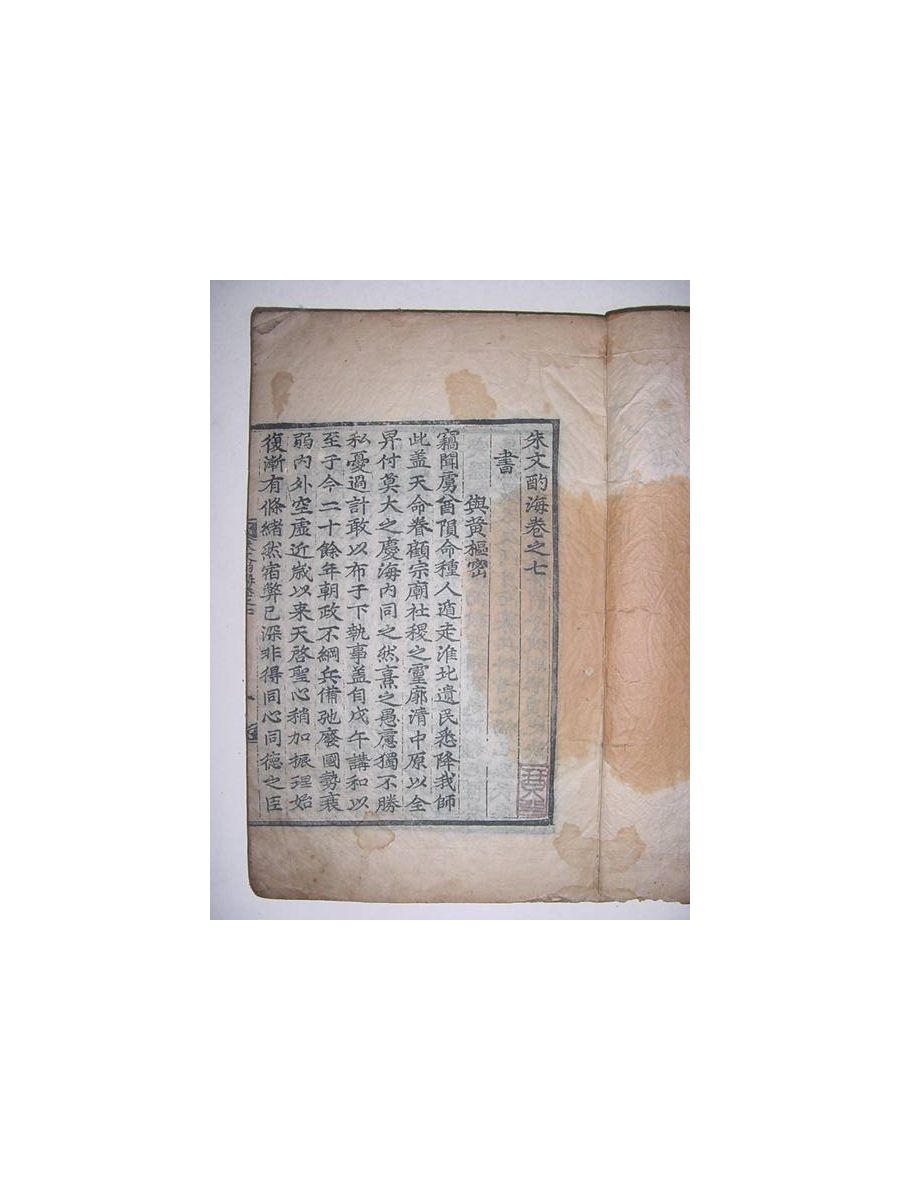 朱文酌海卷之七
書
與黄樞密
竊聞虜酋隕命種人遁走淮北遺民悉降我師
此盖天命眷顧宗廟社稷之霊廓清中原以全
畀付莫大之慶海内同之然熹之愚慮獨不勝
私憂過計敢以布于下執事盖自戊午講和以
至于今二十餘年朝政不綱兵備弛廢國勢衰
弱内外空虛近歲以来天啓聖心稍加振理始
復漸有條緒然宿弊已深非得同心同徳之臣